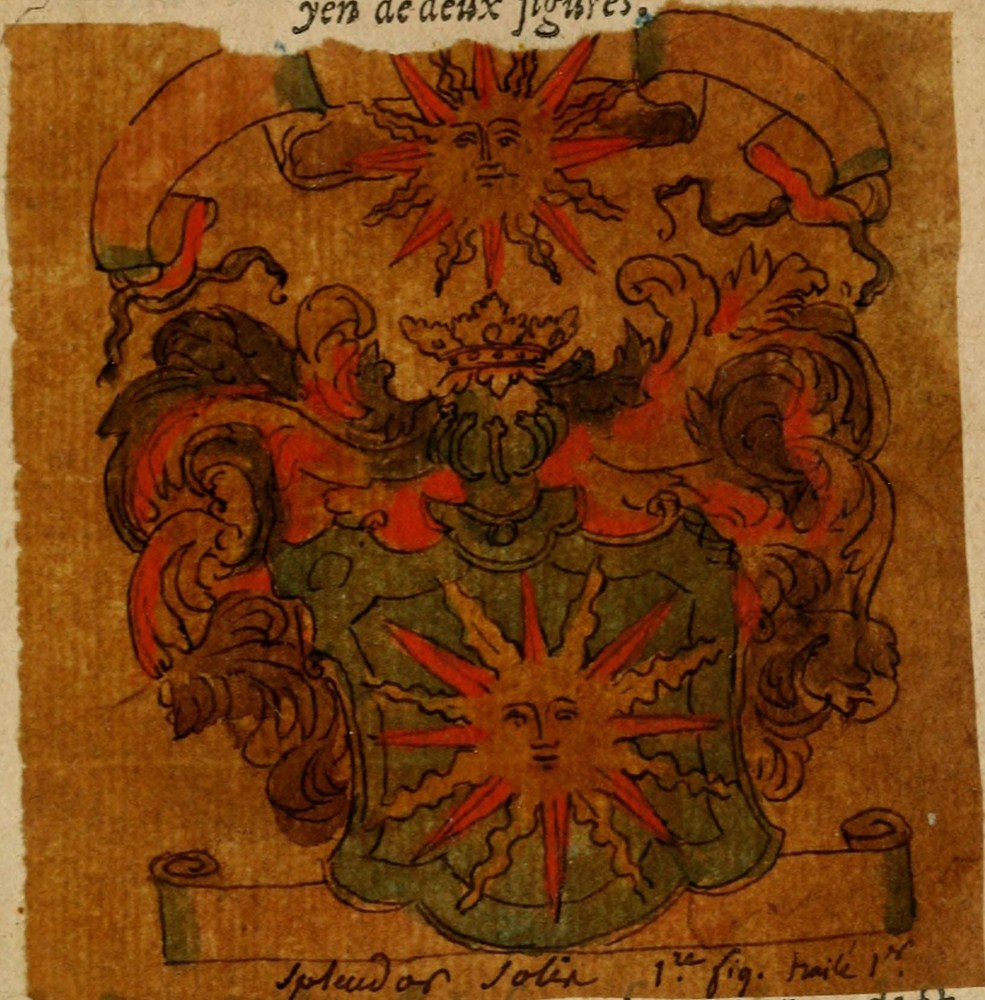 yen de deux figures.
splendor solis 1.re fig. traité 1.r